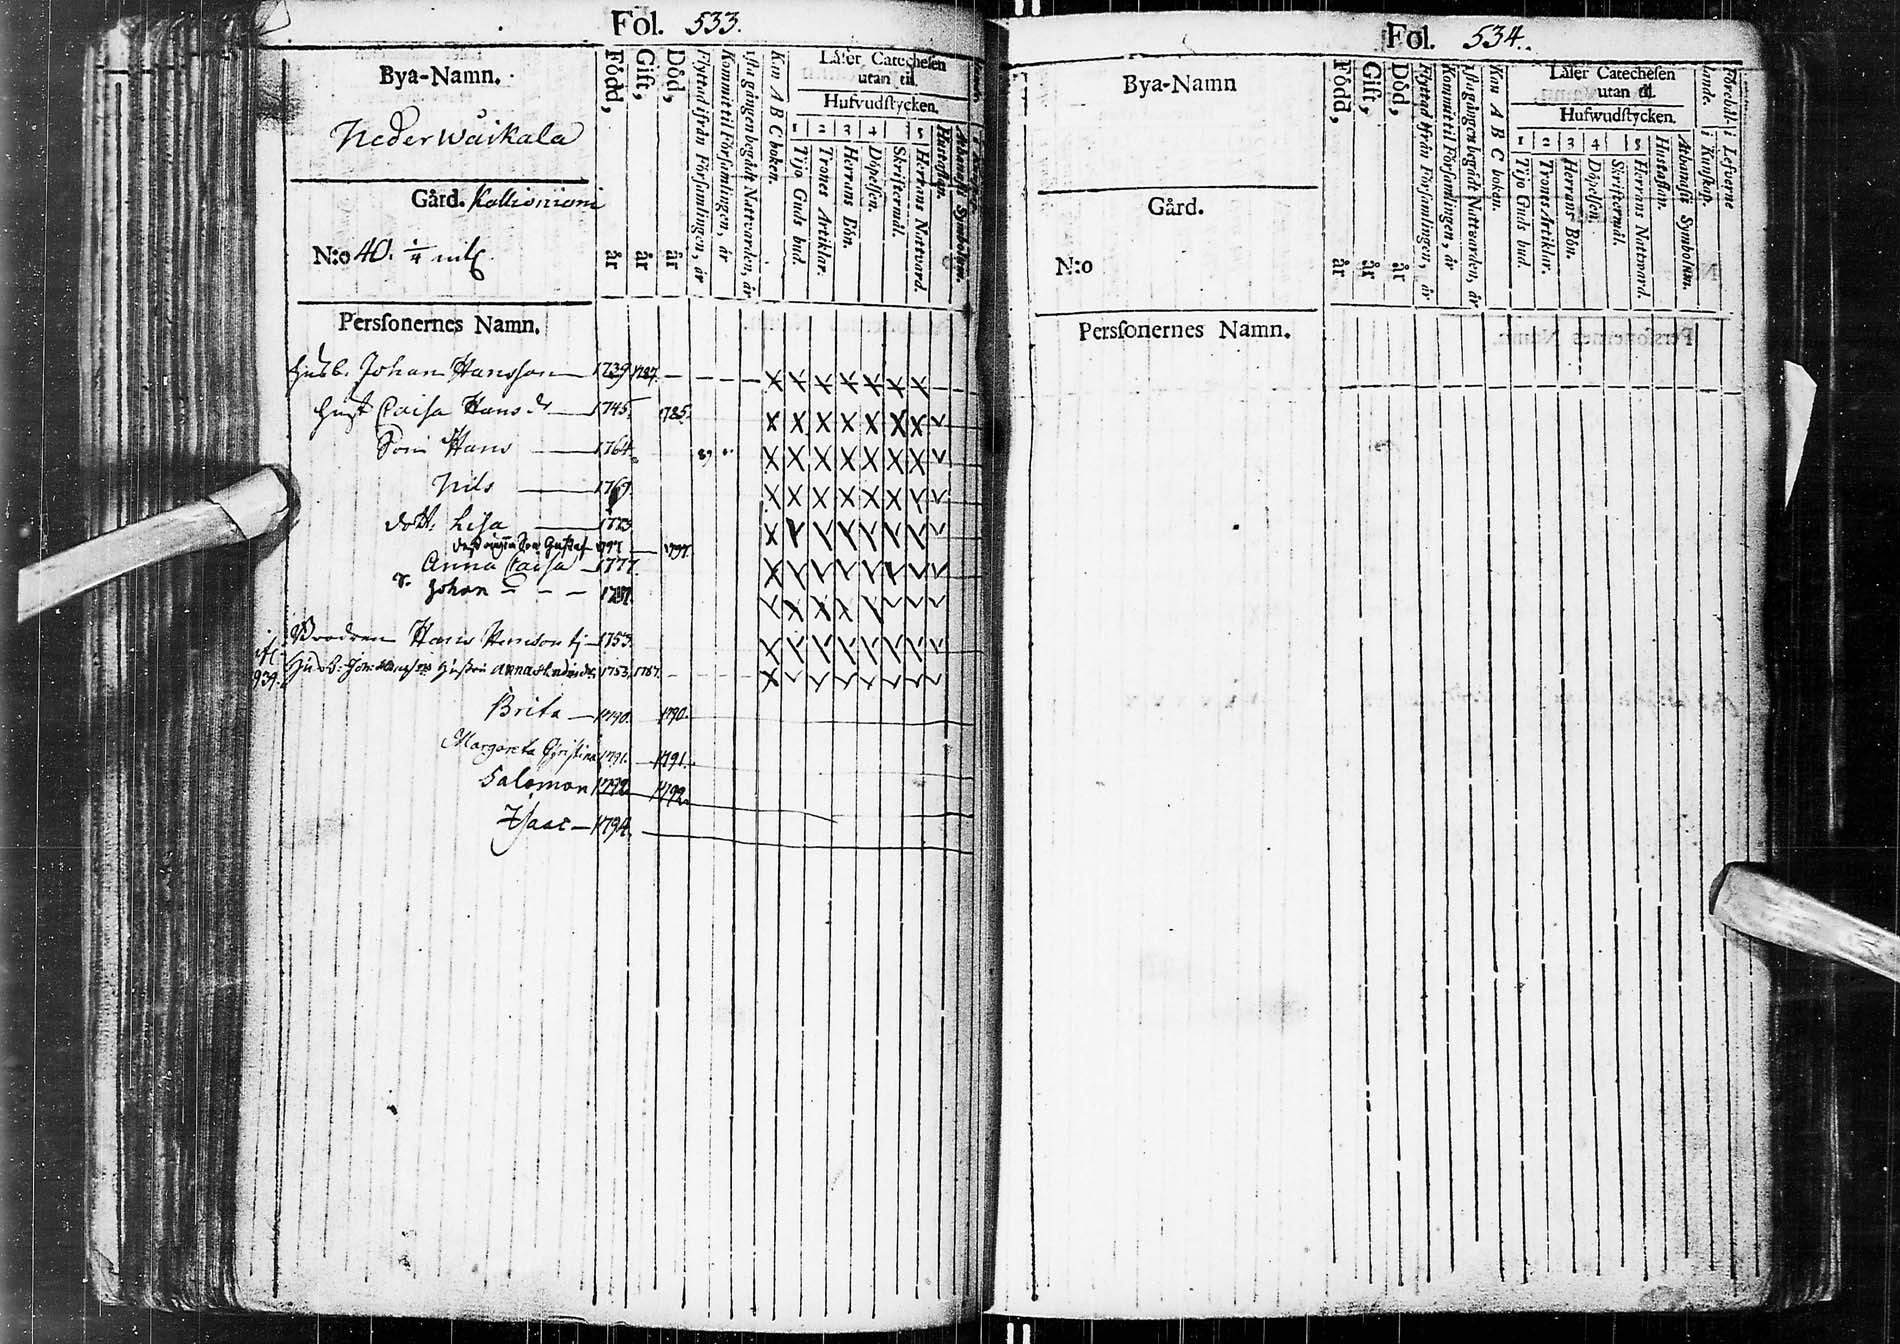 Fol. 533.
Bya-Namn.
Neder Wäikala
Gård. Kallioniemi
N:o 40. 1/4 mtl.
Född, år
Gift, år
Död, år
Flyttad ifrån Församlingen, år
Kommit til Församlingen, år
1sta gången begådt Nattvarden, år
Kan A B C boken.
Läser Catechesen
utan til.
Hufvudstycken.
1 2 3 4 5
Tijo Guds bud.
Trones Artiklar.
Herrans Bön.
Döpelsen.
Skriftermål.
Herrans Natvard.
Hustaflan.
Athanasii Symbolum.
Perssonernes Namn.
Husb. Johan Hansson 1739 1787.
Hust Caisa Hansdr 1745. 1785.
Son Hans 1764.
Nils 1769.
dott. Lisa 1773
Son Gustaf 1797 1797.
Anna Caisa 1777.
S. Johan 1781.
Brodren Hans Hansson 1753.
939. Husb: Joh: Hanssons Hustru Anna 1753. 1787.
Brita 1790. 1790.
Margareta Christina 1791. 1791.
Salomon 1792 1792.
Isaac 1794.
Fol. 534.
Bya-Namn
Gård.
N:o
Född, år
Gift, år
Död, år
Flyttad ifrån Församlingen, år
Kommit til Församlingen, år
1sta gången begådt Nattvarden, år
Kan A B C boken.
Läser Catechesen
utan til.
Hufwudstycken.
1 2 3 4 5
Tijo Guds bud.
Trones Artiklar.
Herrans Bön.
Döpelsen.
Skriftermål.
Herrans Natward.
Hustaflan.
Athanasii Symbolum.
i Kunskap.
i Lefverne
Perssonernes Namn.